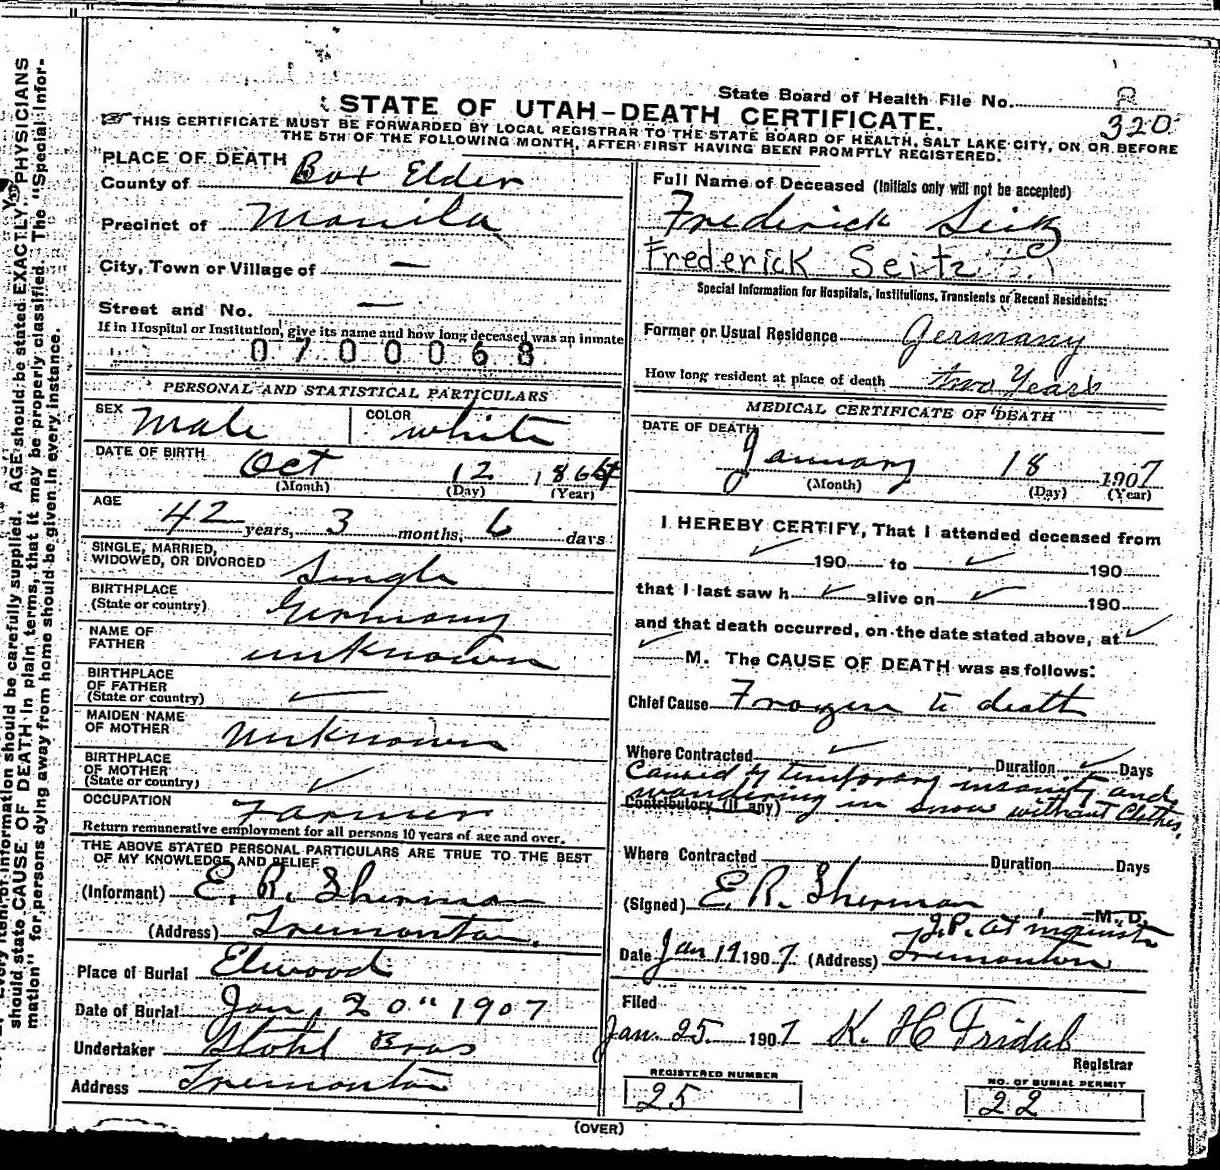 State Board of Health File No. 2
320
STATE OF UTAH–DEATH CERTIFICATE.
THIS CERTIFICATE MUST BE FORWARDED BY LOCAL REGISTRAR TO THE STATE BOARD OF HEALTH, SALT LAKE CITY, ON OR BEFORE
THE 5TH OF THE FOLLOWING MONTH, AFTER FIRST HAVING BEEN PROMPTLY REGISTERED.
PLACE OF DEATH
County of Box Elder
Precinct of Manila
City, Town or Village of —
Street and No. —
If in Hospital or Institution, give its name and how long deceased was an inmate
0700068
PERSONAL AND STATISTICAL PARTICULARS
SEX Male COLOR white
DATE OF BIRTH Oct 12 1864
(Month) (Day) (Year)
AGE 42 years, 3 months, 6 days
SINGLE, MARRIED,
WIDOWED, OR DIVORCED Single
BIRTHPLACE
(State or country) Germany
NAME OF
FATHER unknown
BIRTHPLACE
OF FATHER
(State or country)
MAIDEN NAME
OF MOTHER Unknown
BIRTHPLACE
OF MOTHER
(State or country)
OCCUPATION Farmer
Return remunerative employment for all persons 10 years of age and over.
THE ABOVE STATED PERSONAL PARTICULARS ARE TRUE TO THE BEST
OF MY KNOWLEDGE AND BELIEF
(Informant) E. R. Sherman
(Address) Tremonton.
Place of Burial Elwood
Date of Burial Jan, 20" 1907
Undertaker Stohl Bros
Address Tremonton
Full Name of Deceased (Initials only will not be accepted)
Frederick Seitz
Frederick Seitz
Special Information for Hospitals, Institutions, Transients or Recent Residents:
Former or Usual Residence Germany
How long resident at place of death two Years
MEDICAL CERTIFICATE OF DEATH
DATE OF DEATH
January 18 1907
(Month) (Day) (Year)
I HEREBY CERTIFY, That I attended deceased from
190 to 190
that I last saw h alive on 190
and that death occurred, on the date stated above, at
M. The CAUSE OF DEATH was as follows:
Chief Cause Frozen to death
Where Contracted Duration Days
Caused by temporary insanity and
wandering in snow without Clothes.
Contributory (if any)
Where Contracted Duration Days
(Signed) E. R. Sherman M. D.
J.P. at inquest
Date Jan 19 1907 (Address) Tremonton
Filed
Jan. 25 1907 K. H. Fridal
Registrar
REGISTERED NUMBER
25
NO. OF BURIAL PERMIT
22
(OVER)
Every item of information should be carefully supplied. AGE should be stated EXACTLY. PHYSICIANS
should state CAUSE OF DEATH in plain terms, that it may be properly classified. The "Special Infor-
mation" for persons dying away from home should be given in every instance.